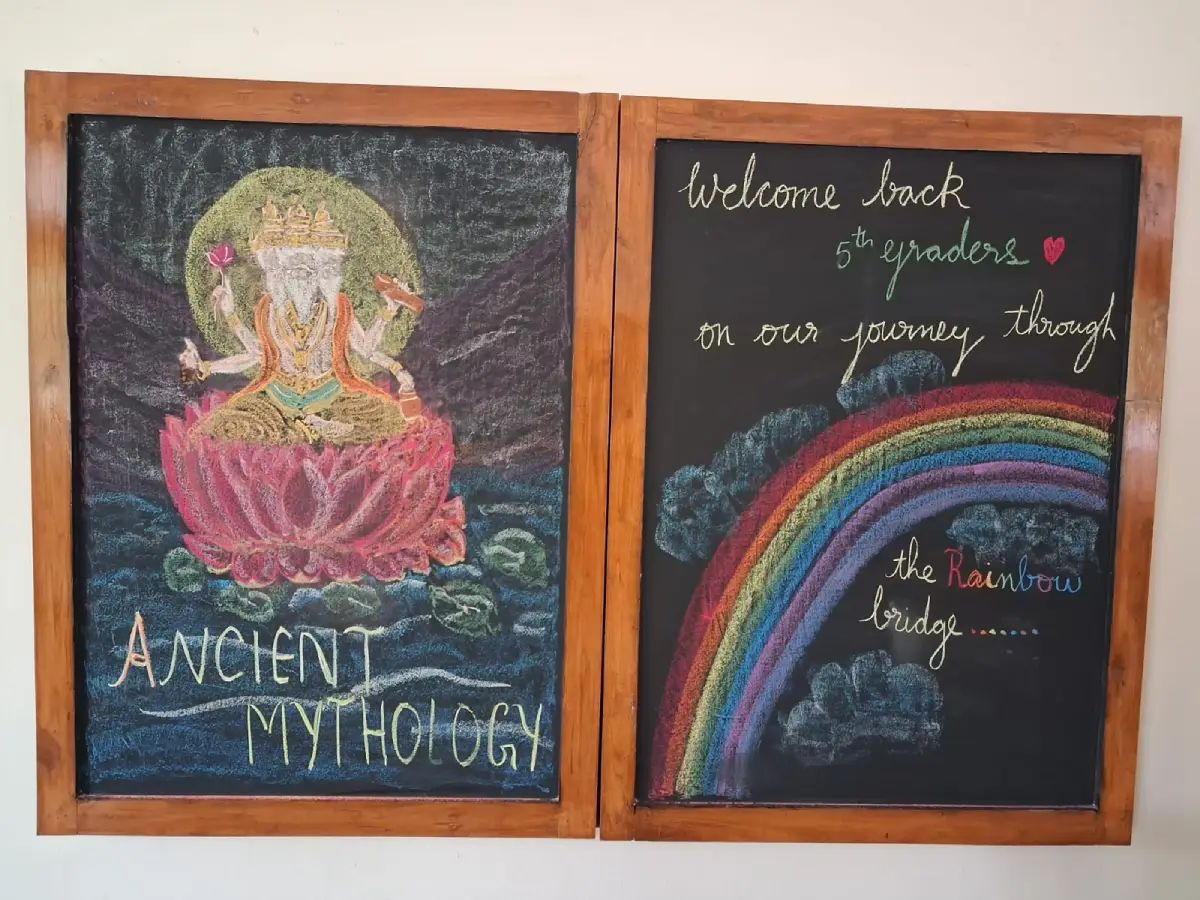 ANCIENT
MYTHOLOGY
Welcome back
5th graders
on our journey through
the Rainbow
bridge.......